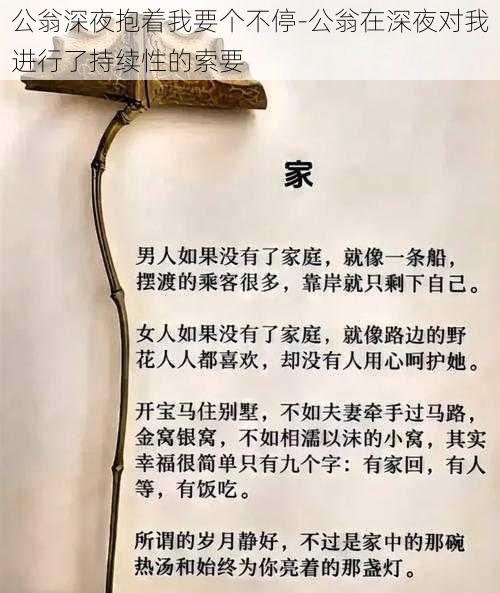 公翁深夜抱着我要个不停-公翁在深夜对我
进行了持续性的索要
家
男人如果没有了家庭，就像一条船，
摆渡的乘客很多，靠岸就只剩下自己。
女人如果没有了家庭，就像路边的野
花人人都喜欢，却没有人用心呵护她。
开宝马住别墅，不如夫妻牵手过马路，
金窝银窝，不如相濡以沫的小窝，其实
幸福很简单只有九个字：有家回，有人
等，有饭吃。
所谓的岁月静好，不过是家中的那碗
热汤和始终为你亮着的那盏灯。